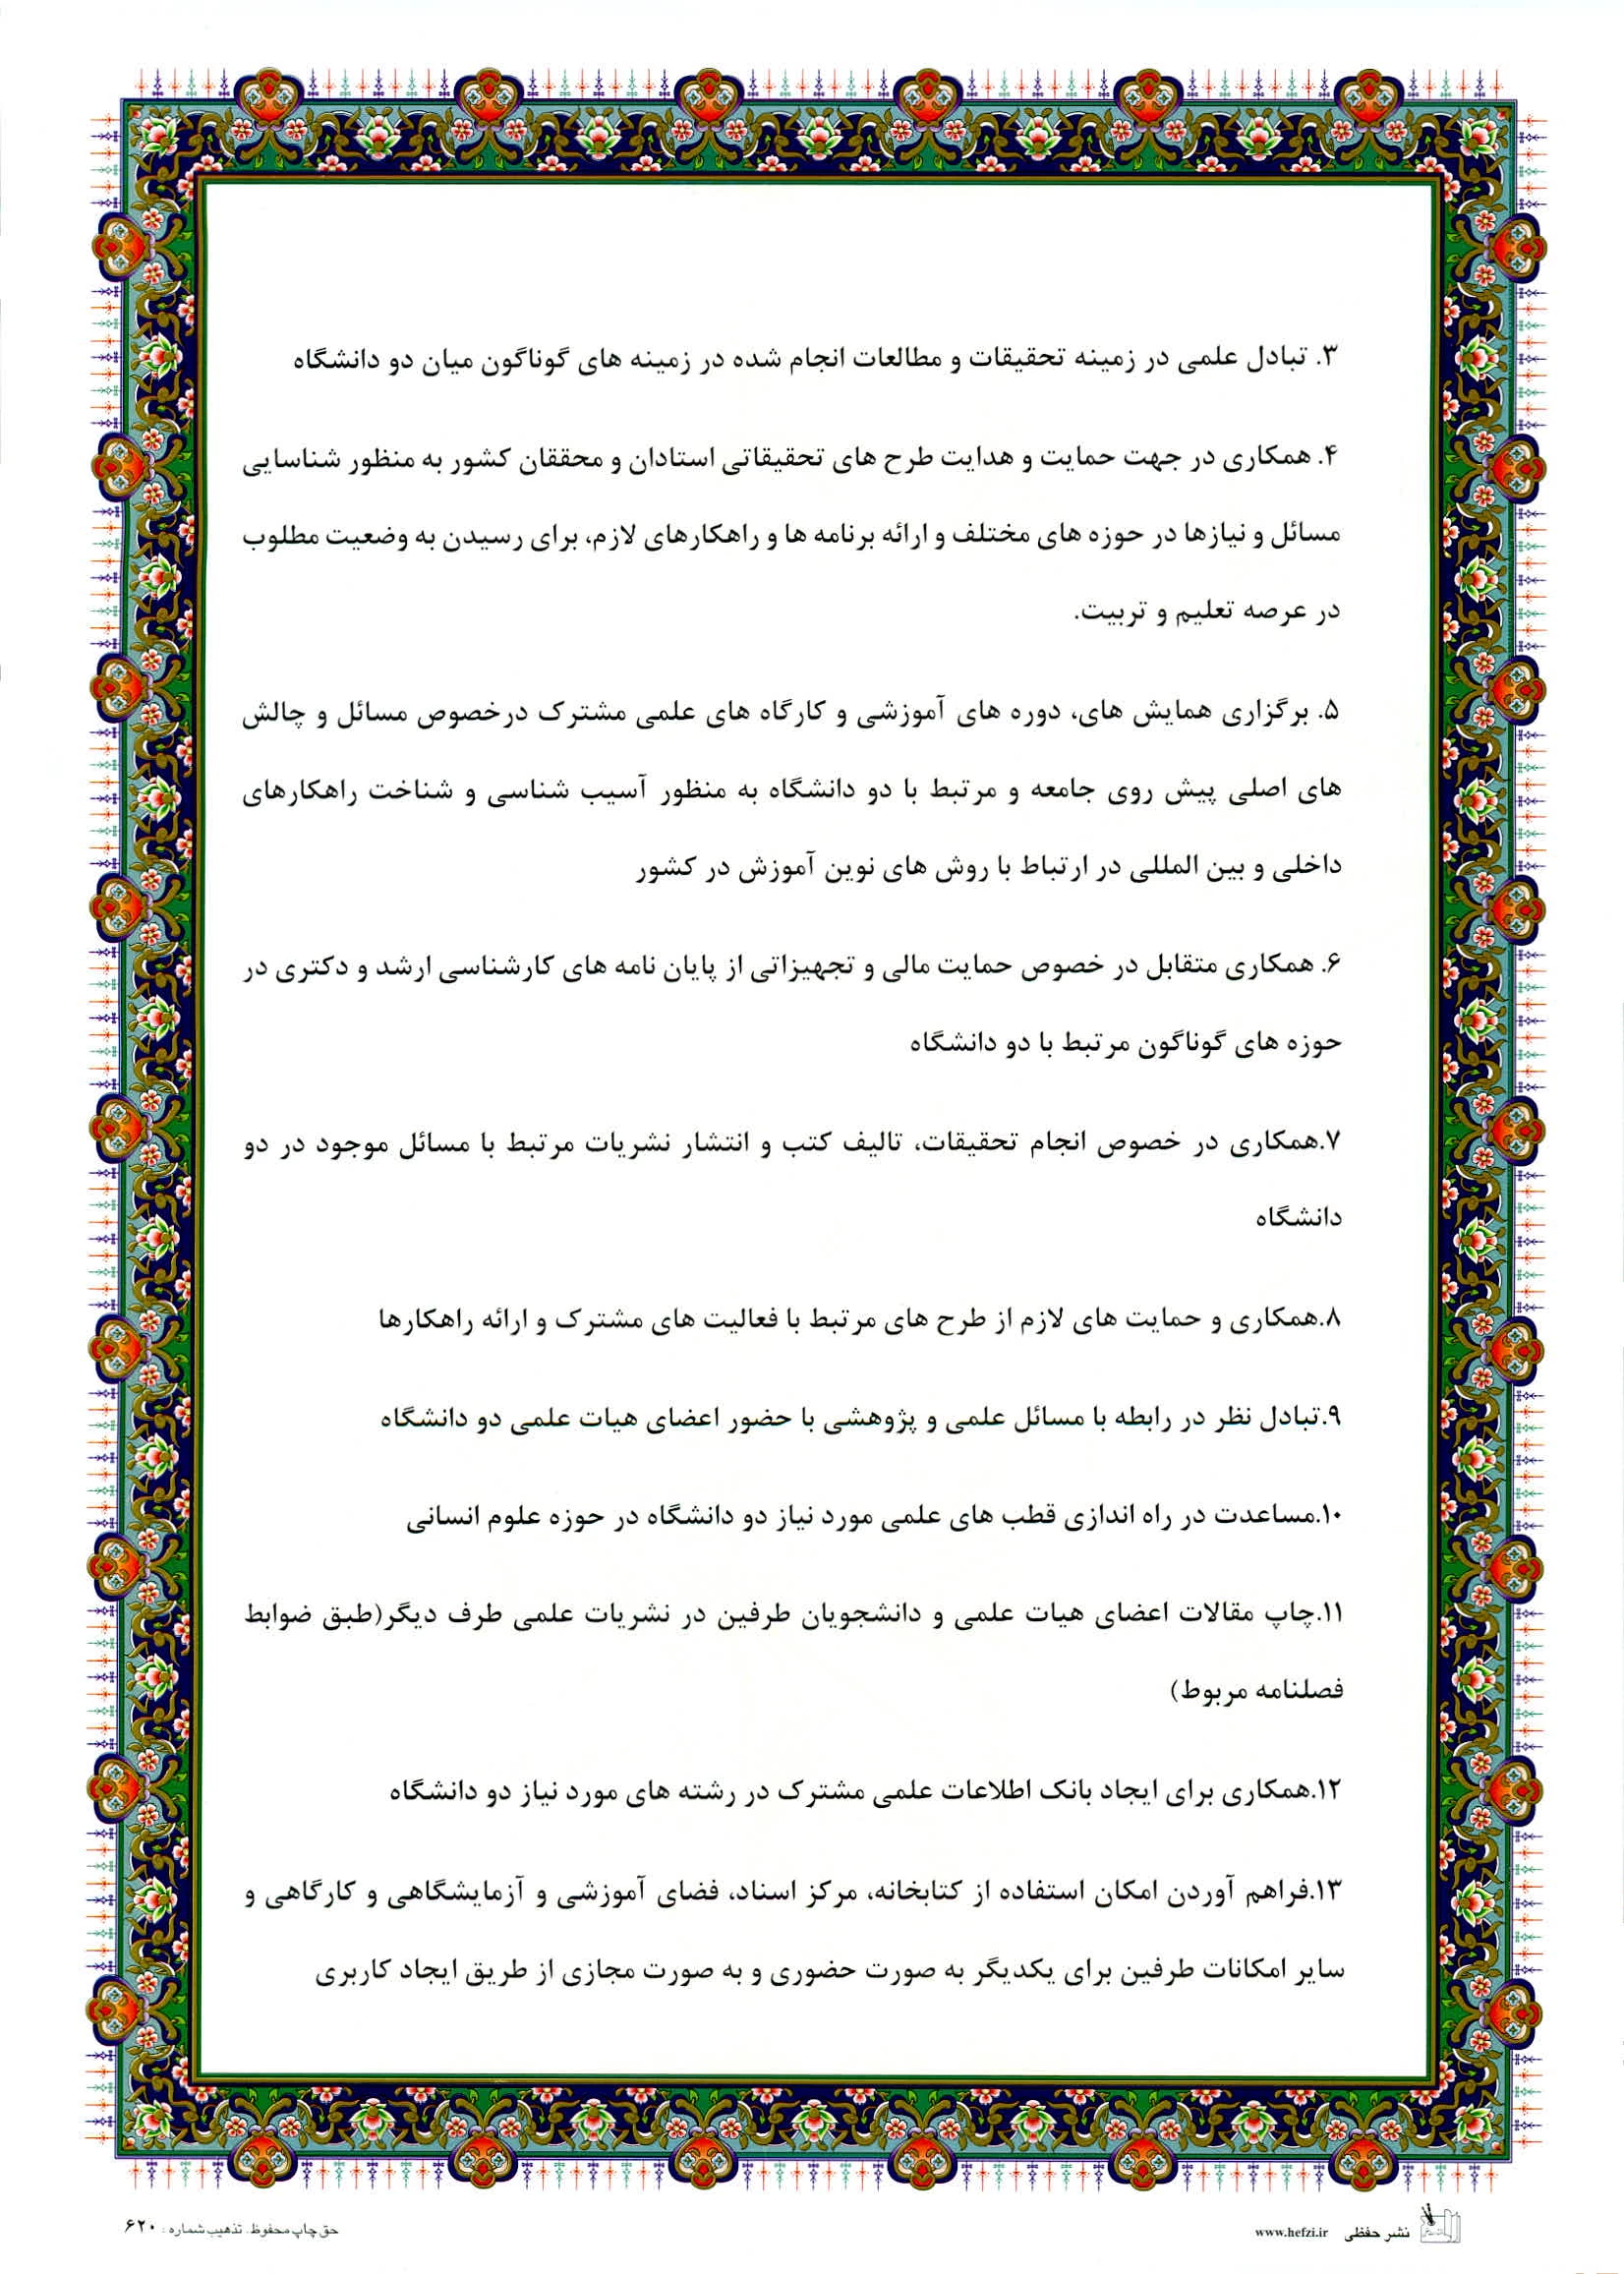 ۳. تبادل علمی در زمینه تحقیقات و مطالعات انجام شده در زمینه های گوناگون میان دو دانشگاه
۴. همکاری در جهت حمایت و هدایت طرح های تحقیقاتی استادان و محققان کشور به منظور شناسایی
مسائل و نیازها در حوزه های مختلف و ارائه برنامه ها و راهکارهای لازم، برای رسیدن به وضعیت مطلوب
در عرصه تعلیم و تربیت.
۵. برگزاری همایش های، دوره های آموزشی و کارگاه های علمی مشترک درخصوص مسائل و چالش
های اصلی پیش روی جامعه و مرتبط با دو دانشگاه به منظور آسیب شناسی و شناخت راهکارهای
داخلی و بین المللی در ارتباط با روش های نوین آموزش در کشور
۶. همکاری متقابل در خصوص حمایت مالی و تجهیزاتی از پایان نامه های کارشناسی ارشد و دکتری در
حوزه های گوناگون مرتبط با دو دانشگاه
۷.همکاری در خصوص انجام تحقیقات، تالیف کتب و انتشار نشریات مرتبط با مسائل موجود در دو
دانشگاه
۸.همکاری و حمایت های لازم از طرح های مرتبط با فعالیت های مشترک و ارائه راهکارها
۹.تبادل نظر در رابطه با مسائل علمی و پژوهشی با حضور اعضای هیات علمی دو دانشگاه
۱۰.مساعدت در راه اندازی قطب های علمی مورد نیاز دو دانشگاه در حوزه علوم انسانی
۱۱.چاپ مقالات اعضای هیات علمی و دانشجویان طرفین در نشریات علمی طرف دیگر(طبق ضوابط
فصلنامه مربوط)
۱۲.همکاری برای ایجاد بانک اطلاعات علمی مشترک در رشته های مورد نیاز دو دانشگاه
۱۳.فراهم آوردن امکان استفاده از کتابخانه، مرکز اسناد، فضای آموزشی و آزمایشگاهی و کارگاهی و
سایر امکانات طرفین برای یکدیگر به صورت حضوری و به صورت مجازی از طریق ایجاد کاربری
نشر حفظی www.hefzi.ir
حق چاپ محفوظ. تذهیب شماره : ۶۲۰